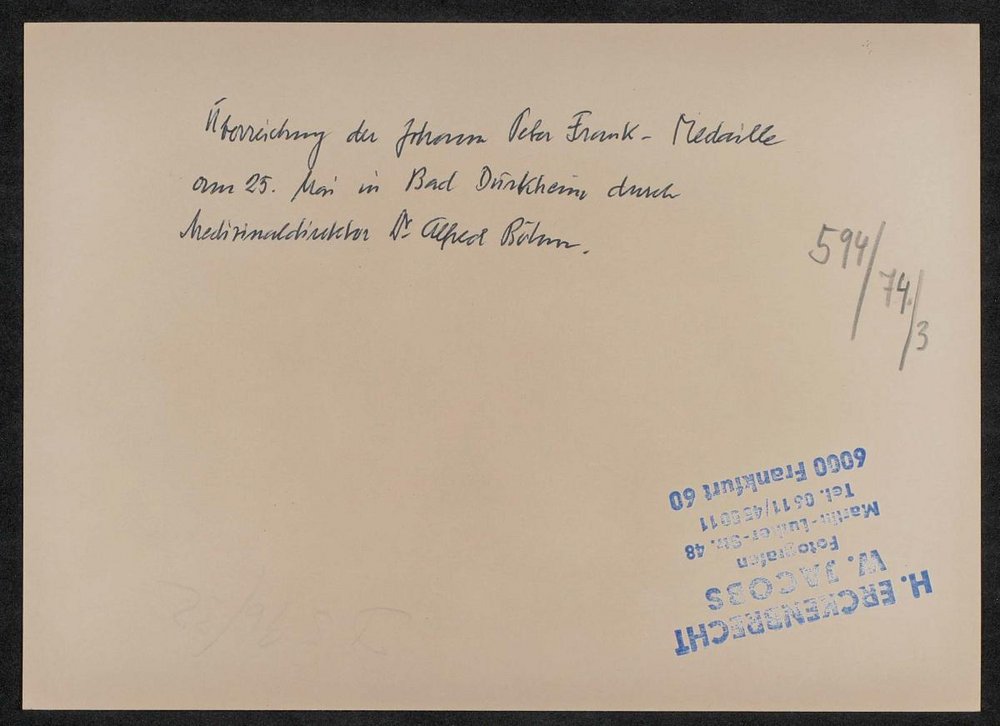 Überreichung der Johann Peter Frank - Medaille
am 25. Mai in Bad Dürkheim durch
Medizinaldirektor Dr. Alfred Böhm.
594/74/3
H. ERCKENBRECHT
W. JACOBS
Fotografen
Martin-Luther-Str. 48
Tel. 0611/
6000 Frankfurt 60